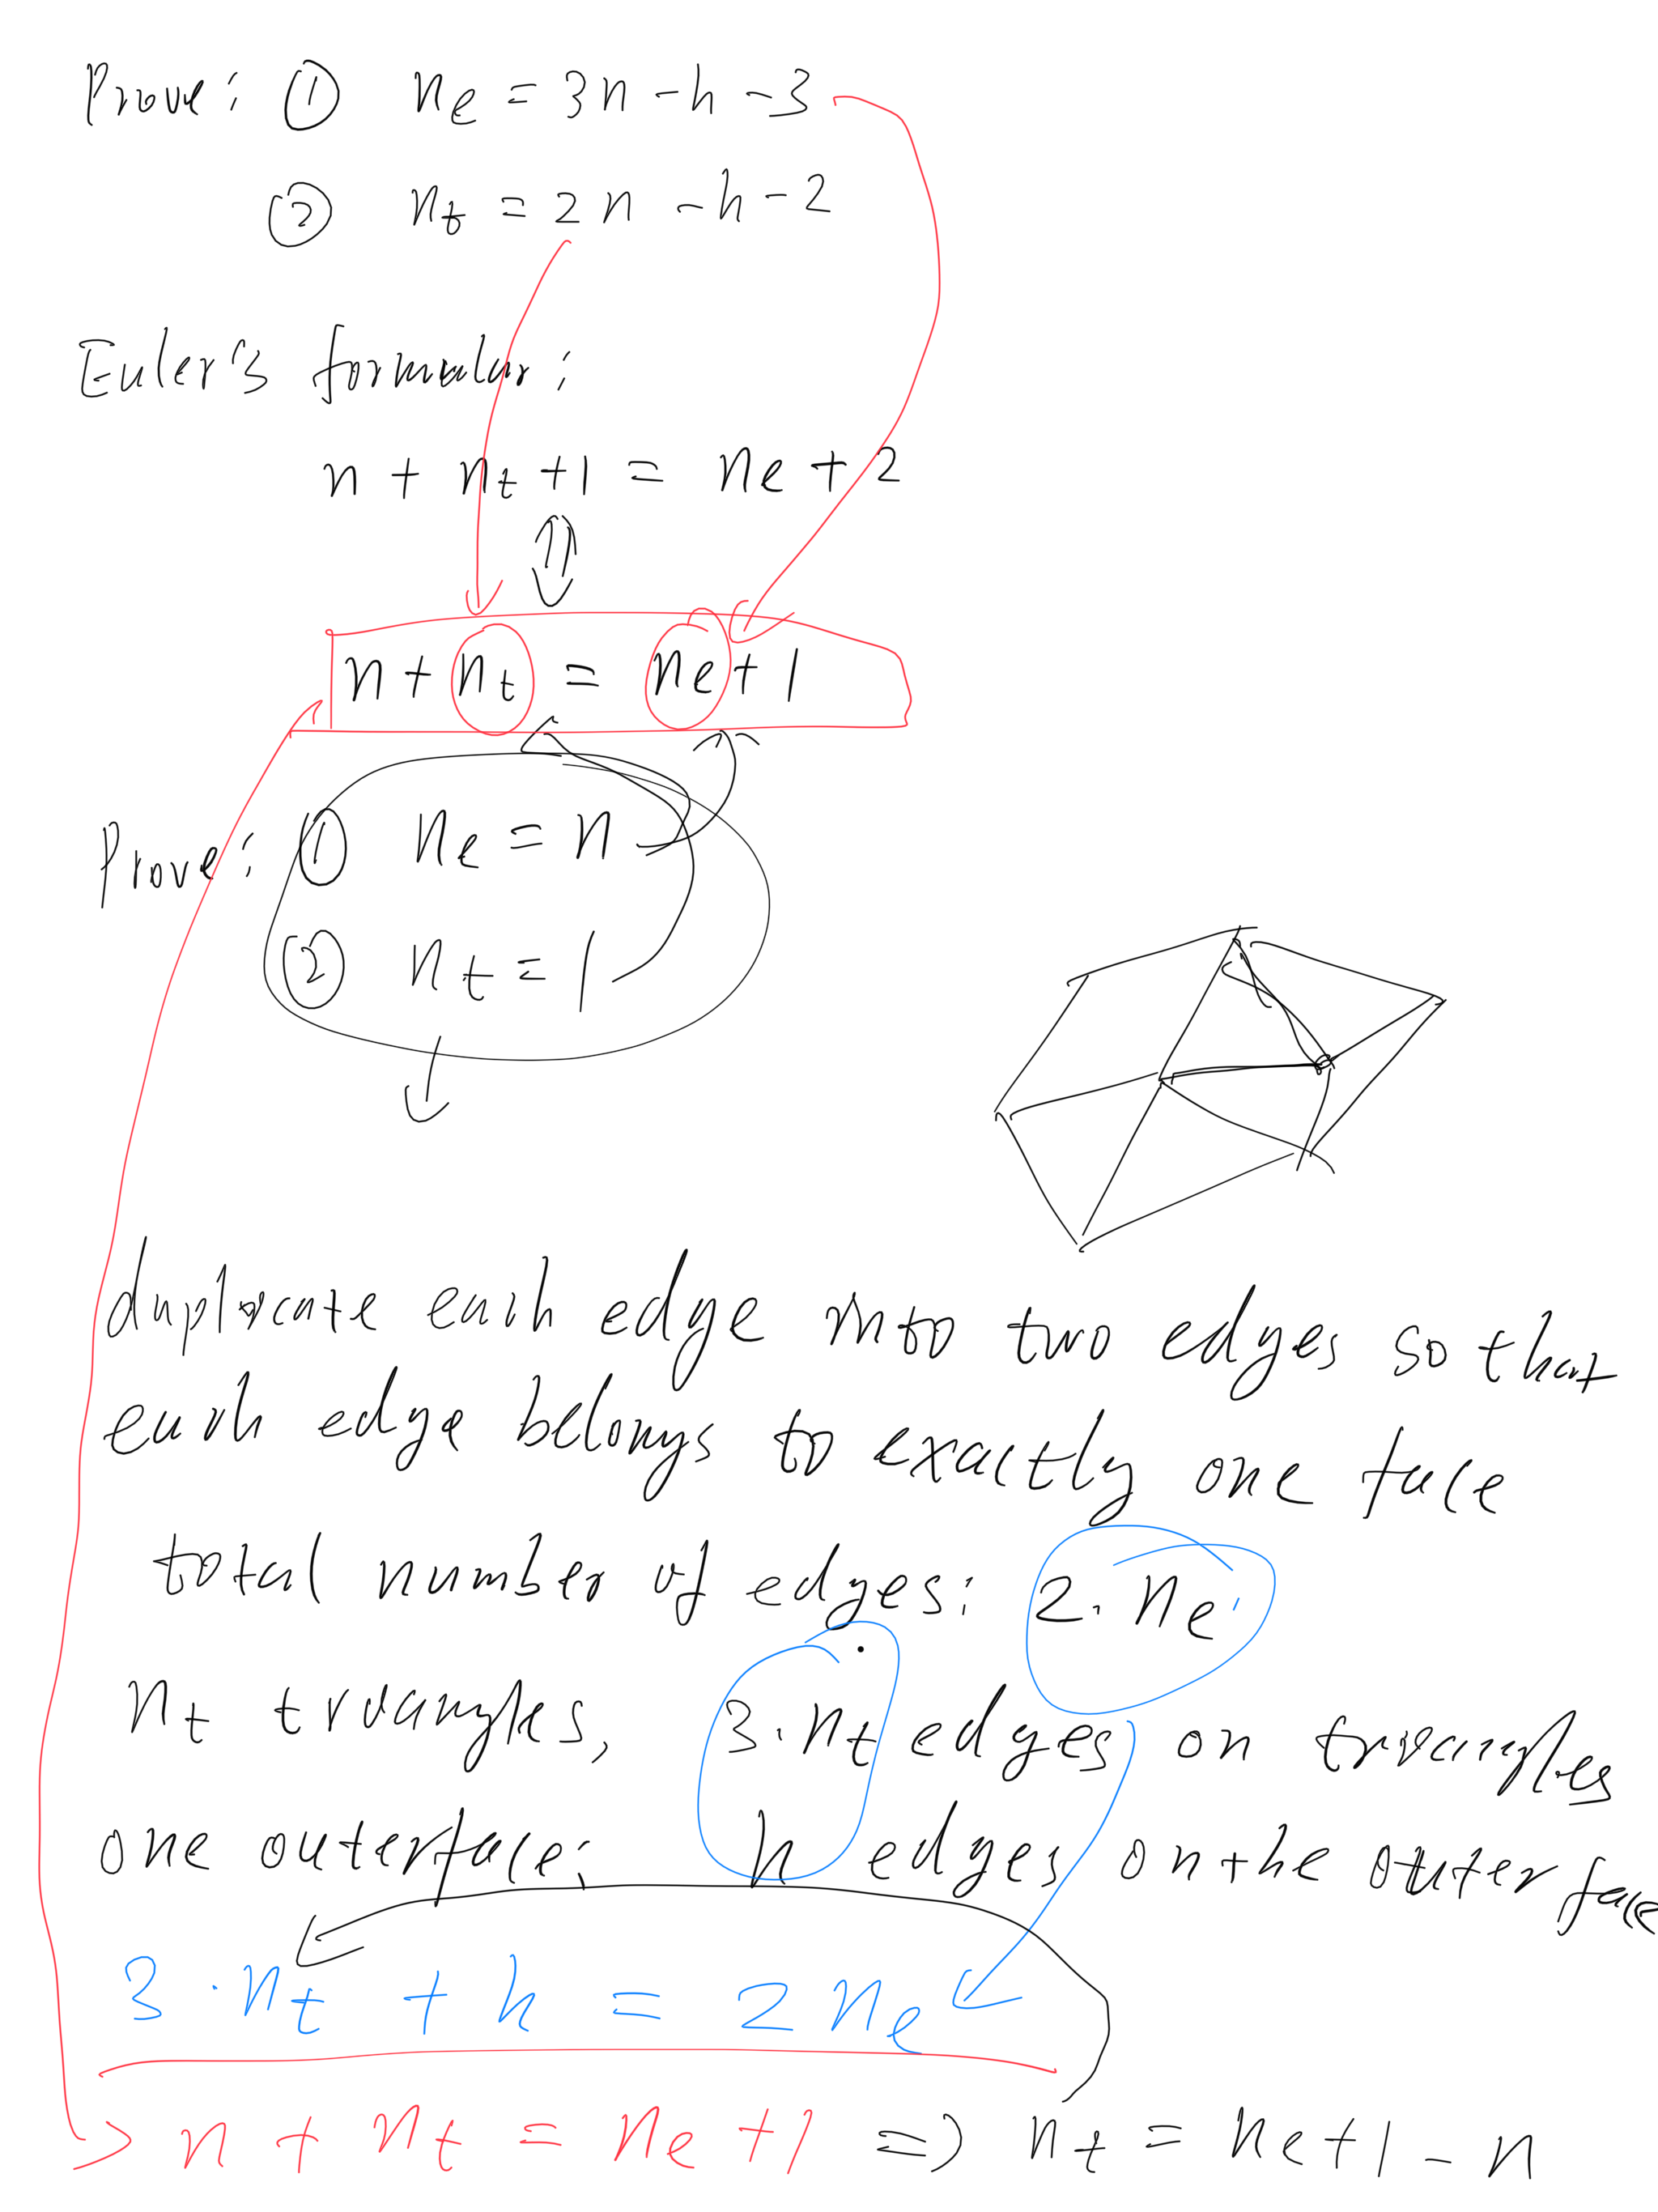 Prove: ① ne = 3n - h - 3
② nt = 2n - h - 2
Euler's formular:
n + nt + 1 = ne + 2
⇕
n + nt = ne + 1
Prove: ① ne = n
② nt = 1
duplicate each edge into two edges so that
each edge belongs to exactly one face
total number of edges: 2. ne
nt triangles, 3·nt edges on triangles
one outerface: h edges on the outer face
3·nt + h = 2ne
n + nt = ne + 1 ⇒ nt = ne + 1 - n